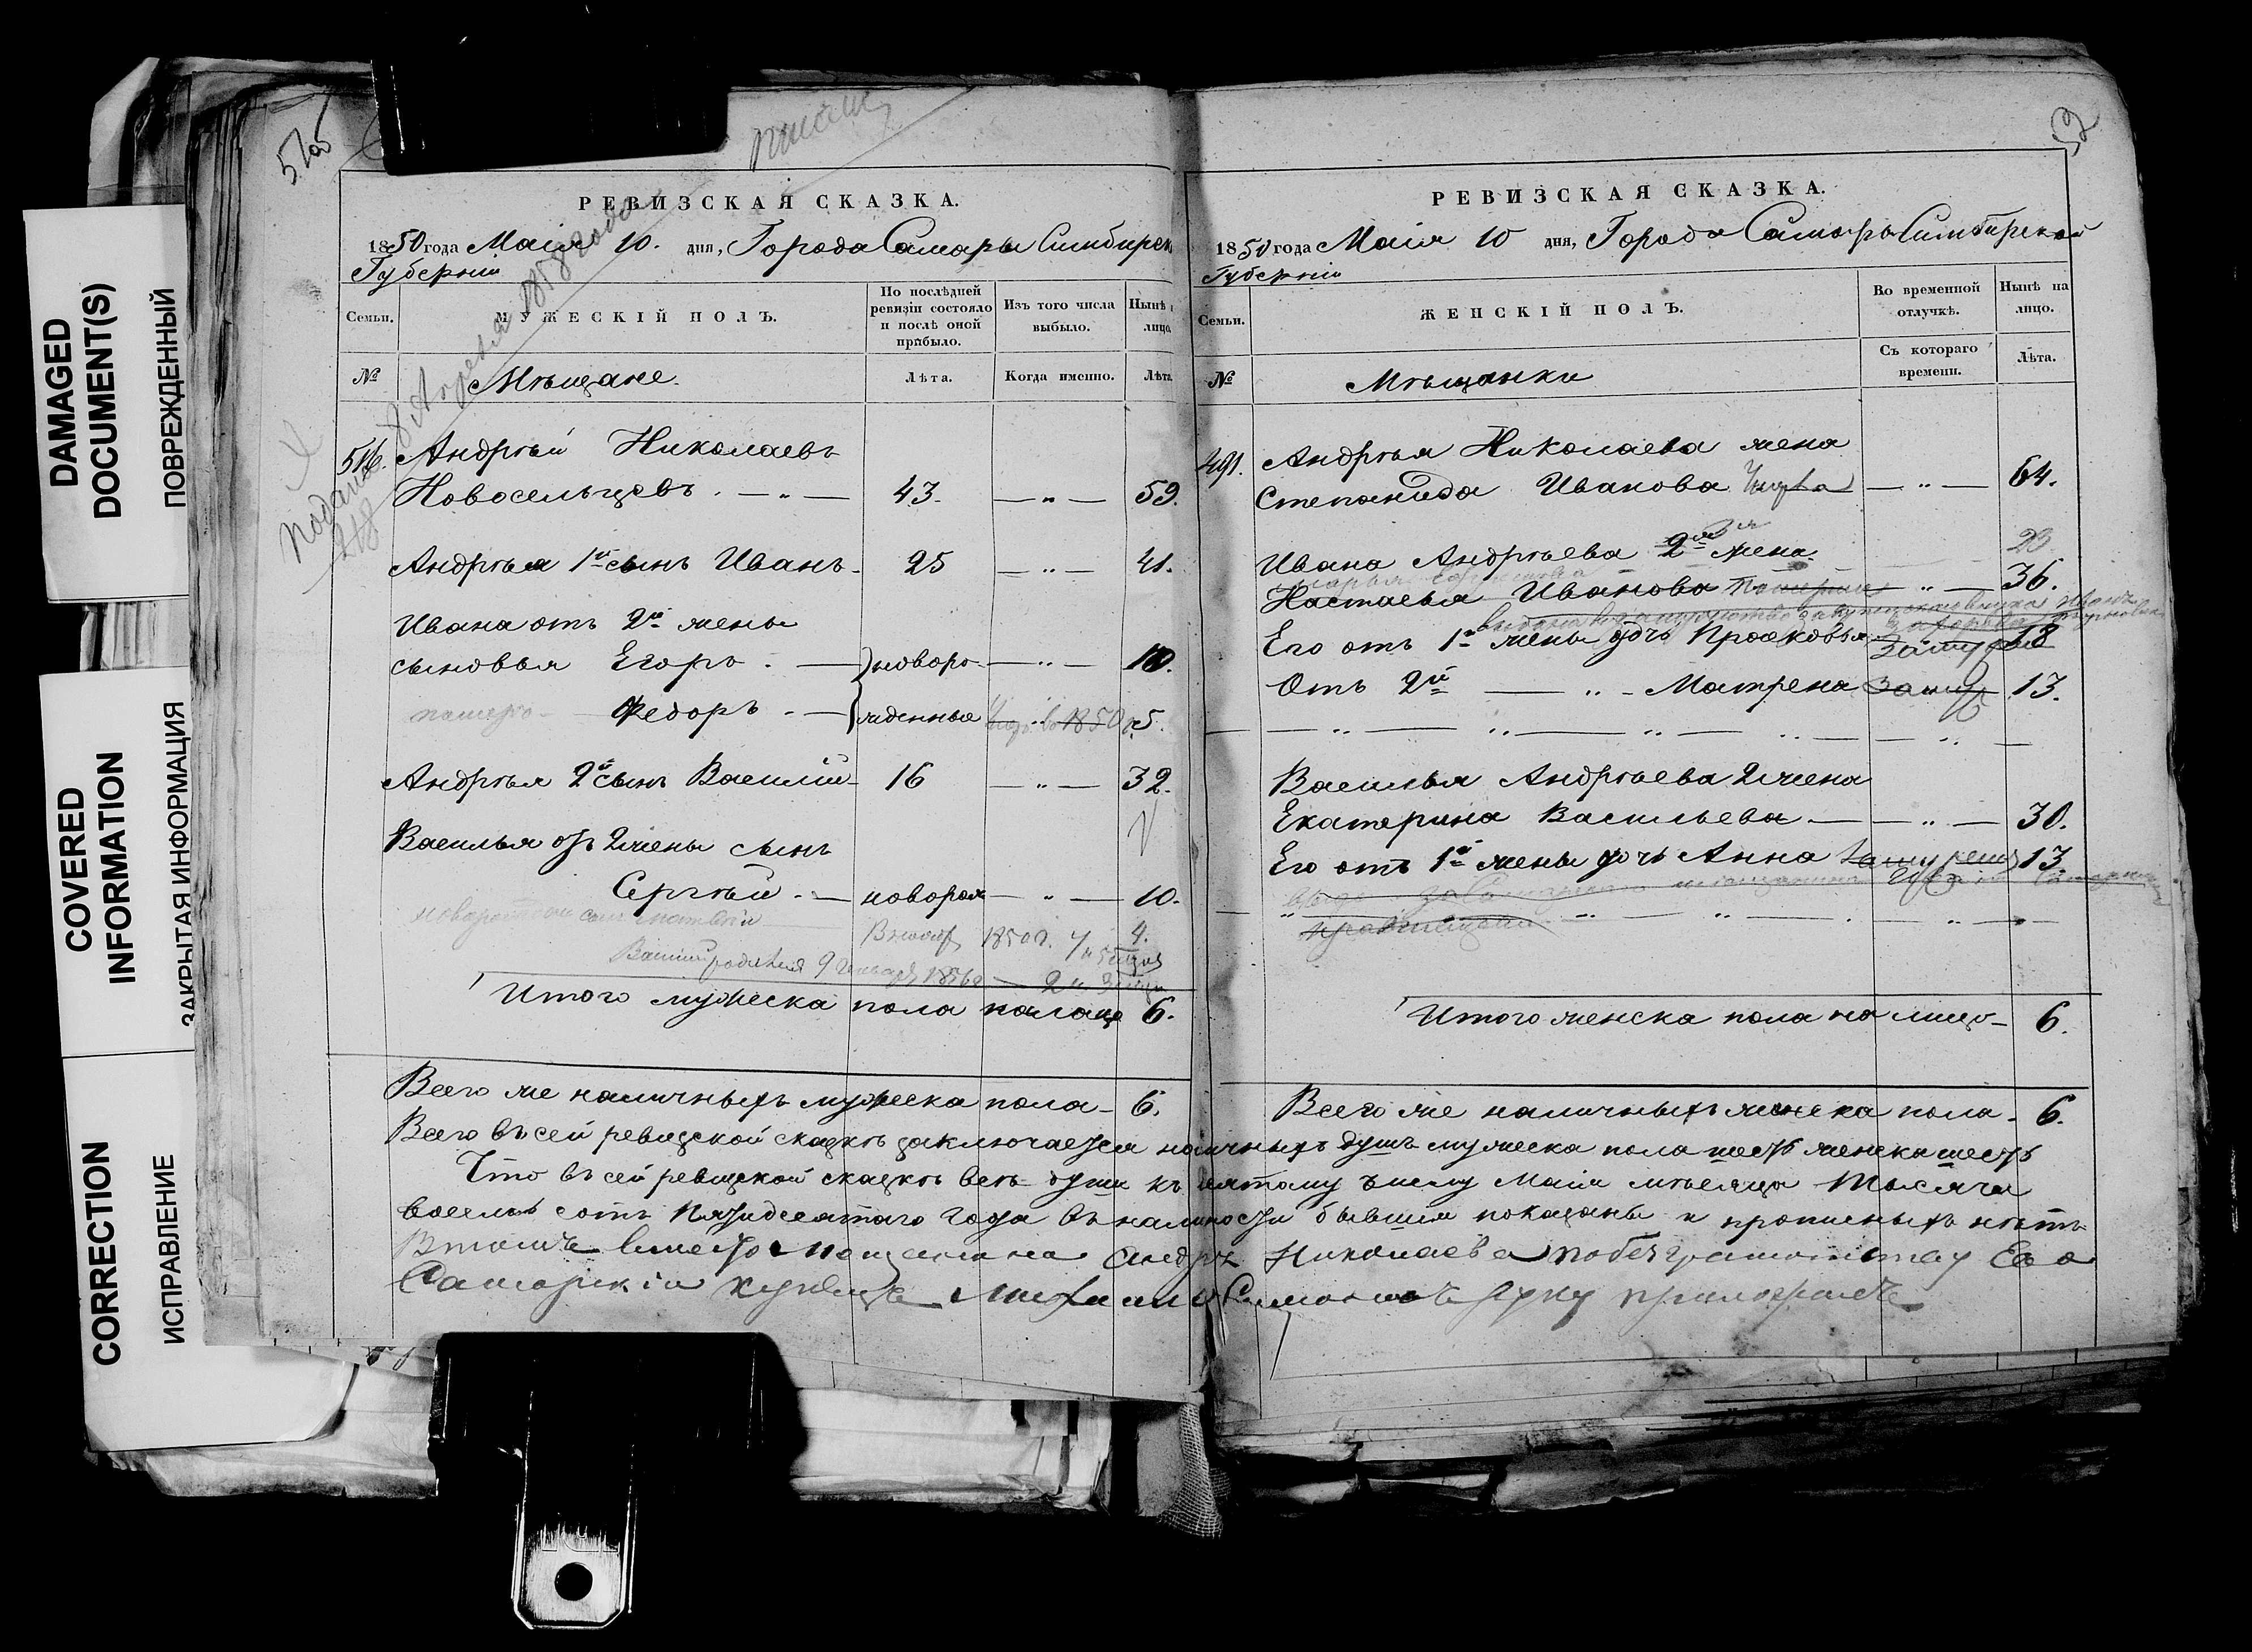 DAMAGED
DOCUMENT(S)
ПОВРЕЖДЕННЫЙ
COVERED
INFORMATION
ЗАКРЫТАЯ ИНФОРМАЦИЯ
CORRECTION
ИСПРАВЛЕНИЕ
РЕВИЗСКАЯ СКАЗКА.
1850 года Маія 10. дня, Города Самары Симбирск
Губерніи
Семьи.
МУЖЕСКІЙ ПОЛЪ.
По послѣдней ревизіи состояло и послѣ оной прибыло.
Изъ того числа выбыло.
Нынѣ
лицо
№
Мѣщане.
Лѣта.
Когда именно.
Лѣта
516. Андрѣй Николаевъ
Новосельцовъ. — „ — 43. — „ — 59.
Андрѣя 1й сынъ Иванъ — 25 — „ — 41.
Ивана отъ 2й жены
сыновья Егоръ. — новоро- — „ — 10.
Федоръ. — жденные 5.
Андрѣя 2й сынъ Василій — 16 — „ — 32.
Василья отъ 2й жены сынъ
Сергѣй. — новорож — „ — 10.
1850 г. 4.
Итого мужеска пола на лицо 6.
Всего же наличныхъ мужеска пола — 6.
52
РЕВИЗСКАЯ СКАЗКА.
1850 года Маія 10 дня, Города Самары Симбирской
Губерніи
Семьи.
ЖЕНСКІЙ ПОЛЪ.
Во временной отлучкѣ.
Нынѣ на лицо.
№
Мѣщанки
Съ котораго времени.
Лѣта.
491. Андрѣя Николаева жена
Степанида Иванова — „ — 64.
Ивана Андрѣева 2я жена
Настасья Иванова — „ — 36.
Его отъ 1й жены дочь Прасковья 18
Отъ 2й — „ — Матрена замуж 13.
Василья Андрѣева 2 жена
Екатерина Васильева — — „ — 30.
Его отъ 1й жены дочь Анна 13
Итого женска пола на лицо — 6.
Всего же наличныхъ женска пола — 6.
Всего въ сей ревизской сказкѣ заключается наличныхъ душъ мужеска пола шесть женска шесть
Что въ сей ревизской сказкѣ всѣ души къ десятому числу Маія мѣсяца тысяча
восемь сотъ пятидесятаго года въ наличности бывшія показаны и прописныхъ нѣтъ
Въ томъ вместо мещанина Андрѣя Николаева по безграмотству Его
Самарскій купецъ Михаилъ руку приложилъ